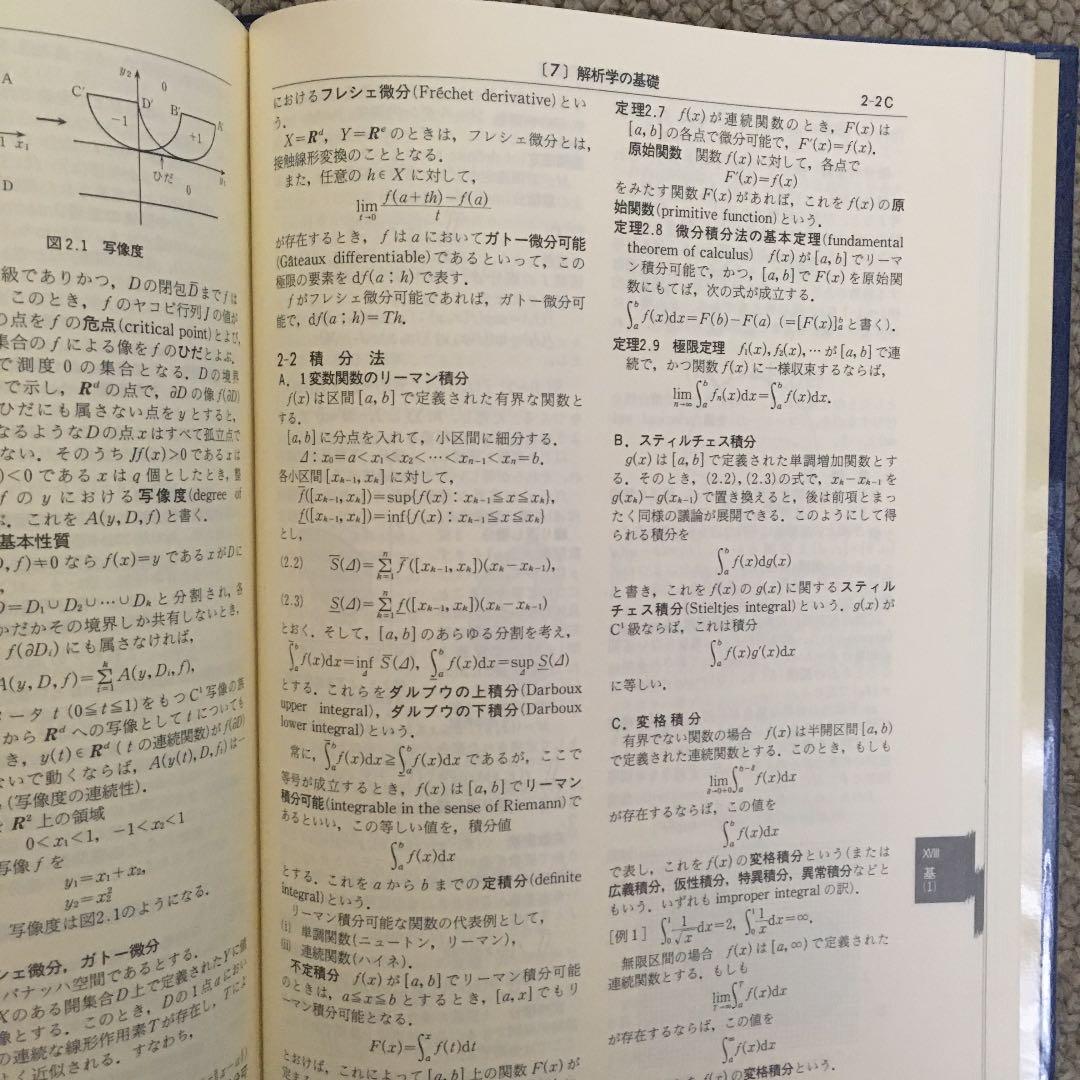 〔7〕解析学の基礎
2-2C
A
C'
y₂
0
D'
B'
−1
+1
0
x₁
1
ひだ
y₁
D
図2.1 写像度
級でありかつ，Dの閉包D̄までfは
このとき，fのヤコビ行列Jの値が
の点をfの危点(critical point)とよび，
集合のfによる像をfのひだとよぶ．
で測度0の集合となる．Dの境界
で示し，Rᵈの点で，∂Dの像f(∂D)
ひだにも属さない点をyとすると，
なるようなDの点xはすべて孤立点で
ない．そのうちJf(x)>0であるxは
)<0であるxはq個としたとき，整
fのyにおける写像度(degree of
これをA(y, D, f)と書く．
基本性質
D, f)≠0ならf(x)=yであるxがDに
D=D₁∪D₂∪⋯∪Dₖと分割され，各
かだかその境界しか共有しないとき，
f(∂Dᵢ)にも属さなければ，
A(y, D, f)=∑ᵢ₌₁ᵏ A(y, Dᵢ, f),
ータt (0≦t≦1)をもつC¹写像の族
からRᵈへの写像としてtについても
き，y(t)∈Rᵈ (tの連続関数)がf(∂D)
ないで動くならば，A(y(t), D, fₜ)は一
(写像度の連続性)．
R²上の領域
0<x₁<1, −1<x₂<1
写像fを
y₁=x₁+x₂,
y₂=x₂²
写像度は図2.1のようになる．
シェ微分，ガトー微分
バナッハ空間であるとする．
Xのある開集合D上で定義されたYに値
象とする．このとき，Dの1点aにおい
の連続な線形作用素Tが存在し，Tによ
よく近似される．すなわち，
におけるフレシェ微分(Fréchet derivative)とい
う．
X=Rᵈ, Y=Rᵉのときは，フレシェ微分とは，
接触線形変換のこととなる．
また，任意のh∈Xに対して，
lim_{t→0} (f(a+th)−f(a))/t
が存在するとき，fはaにおいてガトー微分可能
(Gâteaux differentiable)であるといって，この
極限の要素をdf(a；h)で表す．
fがフレシェ微分可能であれば，ガトー微分可
能で，df(a；h)=Th.
2-2 積分法
A. 1変数関数のリーマン積分
f(x)は区間[a, b]で定義された有界な関数と
する．
[a, b]に分点を入れて，小区間に細分する．
Δ: x₀=a<x₁<x₂<⋯<xₙ₋₁<xₙ=b.
各小区間[xₖ₋₁, xₖ]に対して，
f̄([xₖ₋₁, xₖ])=sup{f(x): xₖ₋₁≦x≦xₖ},
f̲([xₖ₋₁, xₖ])=inf{f(x): xₖ₋₁≦x≦xₖ}
とし，
(2.2) S̄(Δ)=∑ₖ₌₁ⁿ f̄([xₖ₋₁, xₖ])(xₖ−xₖ₋₁),
(2.3) S̲(Δ)=∑ₖ₌₁ⁿ f̲([xₖ₋₁, xₖ])(xₖ−xₖ₋₁)
とおく．そして，[a, b]のあらゆる分割を考え，
∫̄ₐᵇ f(x)dx=inf_Δ S̄(Δ), ∫̲ₐᵇ f(x)dx=sup_Δ S̲(Δ)
とする．これらをダルブウの上積分(Darboux
upper integral)，ダルブウの下積分(Darboux
lower integral)という．
常に，∫̄ₐᵇ f(x)dx≧∫̲ₐᵇ f(x)dxであるが，ここで
等号が成立するとき，f(x)は[a, b]でリーマン
積分可能(integrable in the sense of Riemann)で
あるといい，この等しい値を，積分値
∫ₐᵇ f(x)dx
とする．これをaからbまでの定積分(definite
integral)という．
リーマン積分可能な関数の代表例として，
(i) 単調関数(ニュートン，リーマン)，
(ii) 連続関数(ハイネ)．
不定積分 f(x)が[a, b]でリーマン積分可能
のときは，a≦x≦bとするとき，[a, x]でもリ
ーマン積分可能となる．
F(x)=∫ₐˣ f(t)dt
とおけば，これによって[a, b]上の関数F(x)が
定理2.7 f(x)が連続関数のとき，F(x)は
[a, b]の各点で微分可能で，F′(x)=f(x).
原始関数 関数f(x)に対して，各点で
F′(x)=f(x)
をみたす関数F(x)があれば，これをf(x)の原
始関数(primitive function)という．
定理2.8 微分積分法の基本定理(fundamental
theorem of calculus) f(x)が[a, b]でリーマ
ン積分可能で，かつ，[a, b]でF(x)を原始関
数にもてば，次の式が成立する．
∫ₐᵇ f(x)dx=F(b)−F(a) (=[F(x)]ₐᵇと書く)．
定理2.9 極限定理 f₁(x), f₂(x), ⋯が[a, b]で連
続で，かつ関数f(x)に一様収束するならば，
lim_{n→∞}∫ₐᵇ fₙ(x)dx=∫ₐᵇ f(x)dx.
B. スティルチェス積分
g(x)は[a, b]で定義された単調増加関数とす
る．そのとき，(2.2), (2.3)の式で，xₖ−xₖ₋₁を
g(xₖ)−g(xₖ₋₁)で置き換えると，後は前項とまっ
たく同様の議論が展開できる．このようにして得
られる積分を
∫ₐᵇ f(x)dg(x)
と書き，これをf(x)のg(x)に関するスティル
チェス積分(Stieltjes integral)という．g(x)が
C¹級ならば，これは積分
∫ₐᵇ f(x)g′(x)dx
に等しい．
C. 変格積分
有界でない関数の場合 f(x)は半開区間[a, b)
で定義された連続関数とする．このとき，もしも
lim_{δ→0+0}∫ₐᵇ⁻ᵟ f(x)dx
が存在するならば，この値を
∫ₐᵇ f(x)dx
で表し，これをf(x)の変格積分という(または
広義積分，仮性積分，特異積分，異常積分などと
もいう．いずれもimproper integralの訳)．
[例1] ∫₀¹ 1/√x dx=2, ∫₀¹ 1/x dx=∞.
無限区間の場合 f(x)は[a, ∞)で定義された
連続関数とする．もしも
lim_{T→∞}∫ₐᵀ f(x)dx
が存在するならば，この値を
∫ₐ^∞ f(x)dx
で表し，これをf(x)の変格積分という．
XVIII
基
(1)